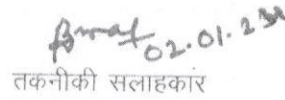 02.01.23
तकनीकी सलाहकार